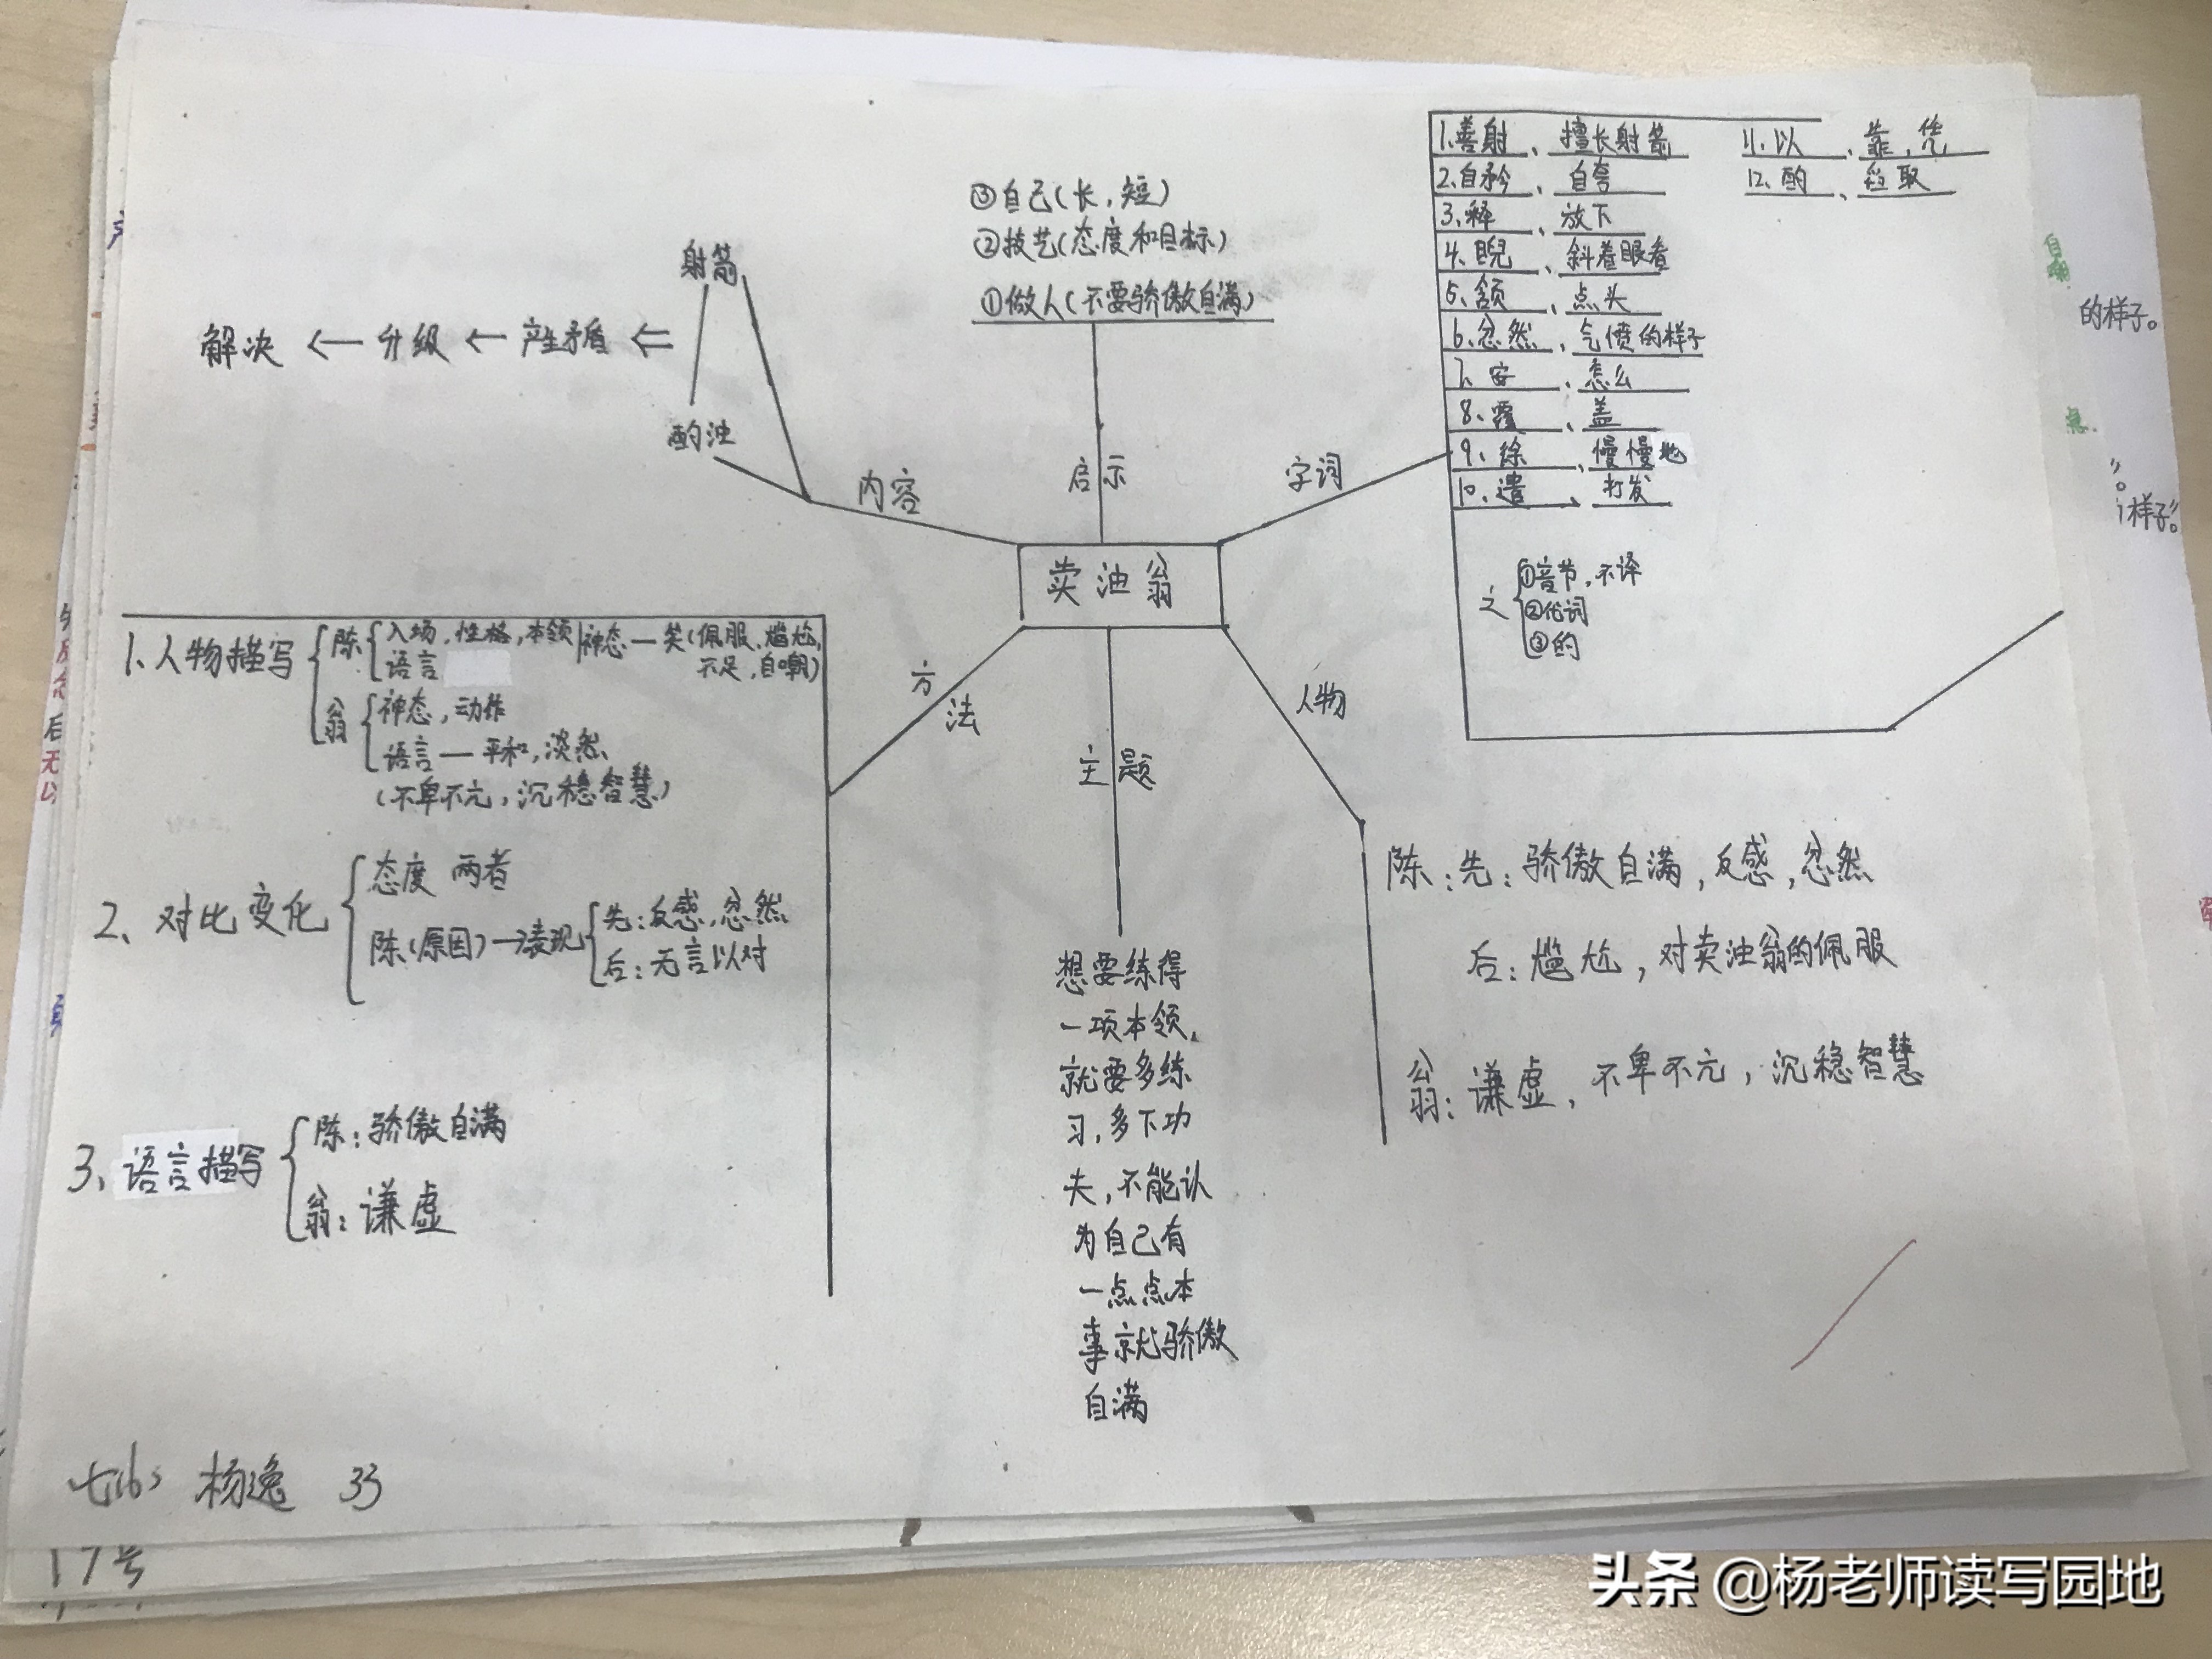 ③自己(长,短)
②技艺(态度和目标)
①做人(不要骄傲自满)
启示
射箭
酌油
解决 ← 升级 ← 产生矛盾 ⇐
内容
字词
1.善射、擅长射箭
2.自矜、自夸
3、释、放下
4、睨、斜着眼看
5、颔、点头
6、忿然、气愤的样子
7、安、怎么
8、覆、盖
9、徐、慢慢地
10、遣、打发
11、以、靠,凭
12、酌、舀取
之
①音节,不译
②代词
③的
卖油翁
方法
1、人物描写
陈 入场,性格,本领 神态—笑(佩服、尴尬,
语言 不足,自嘲)
翁 神态,动作
语言—平和,淡然、
(不卑不亢,沉稳智慧)
2、对比变化
态度 两者
陈(原因)→表现
先:反感,忿然
后:无言以对
3、语言描写
陈:骄傲自满
翁:谦虚
主题
想要练得
一项本领,
就要多练
习,多下功
夫,不能认
为自己有
一点点本
事就骄傲
自满
人物
陈:先:骄傲自满,反感,忿然
后:尴尬,对卖油翁的佩服
翁:谦虚,不卑不亢,沉稳智慧
七(16) 杨逸 33
17号
的样子。
样子”。
头条 @杨老师读写园地